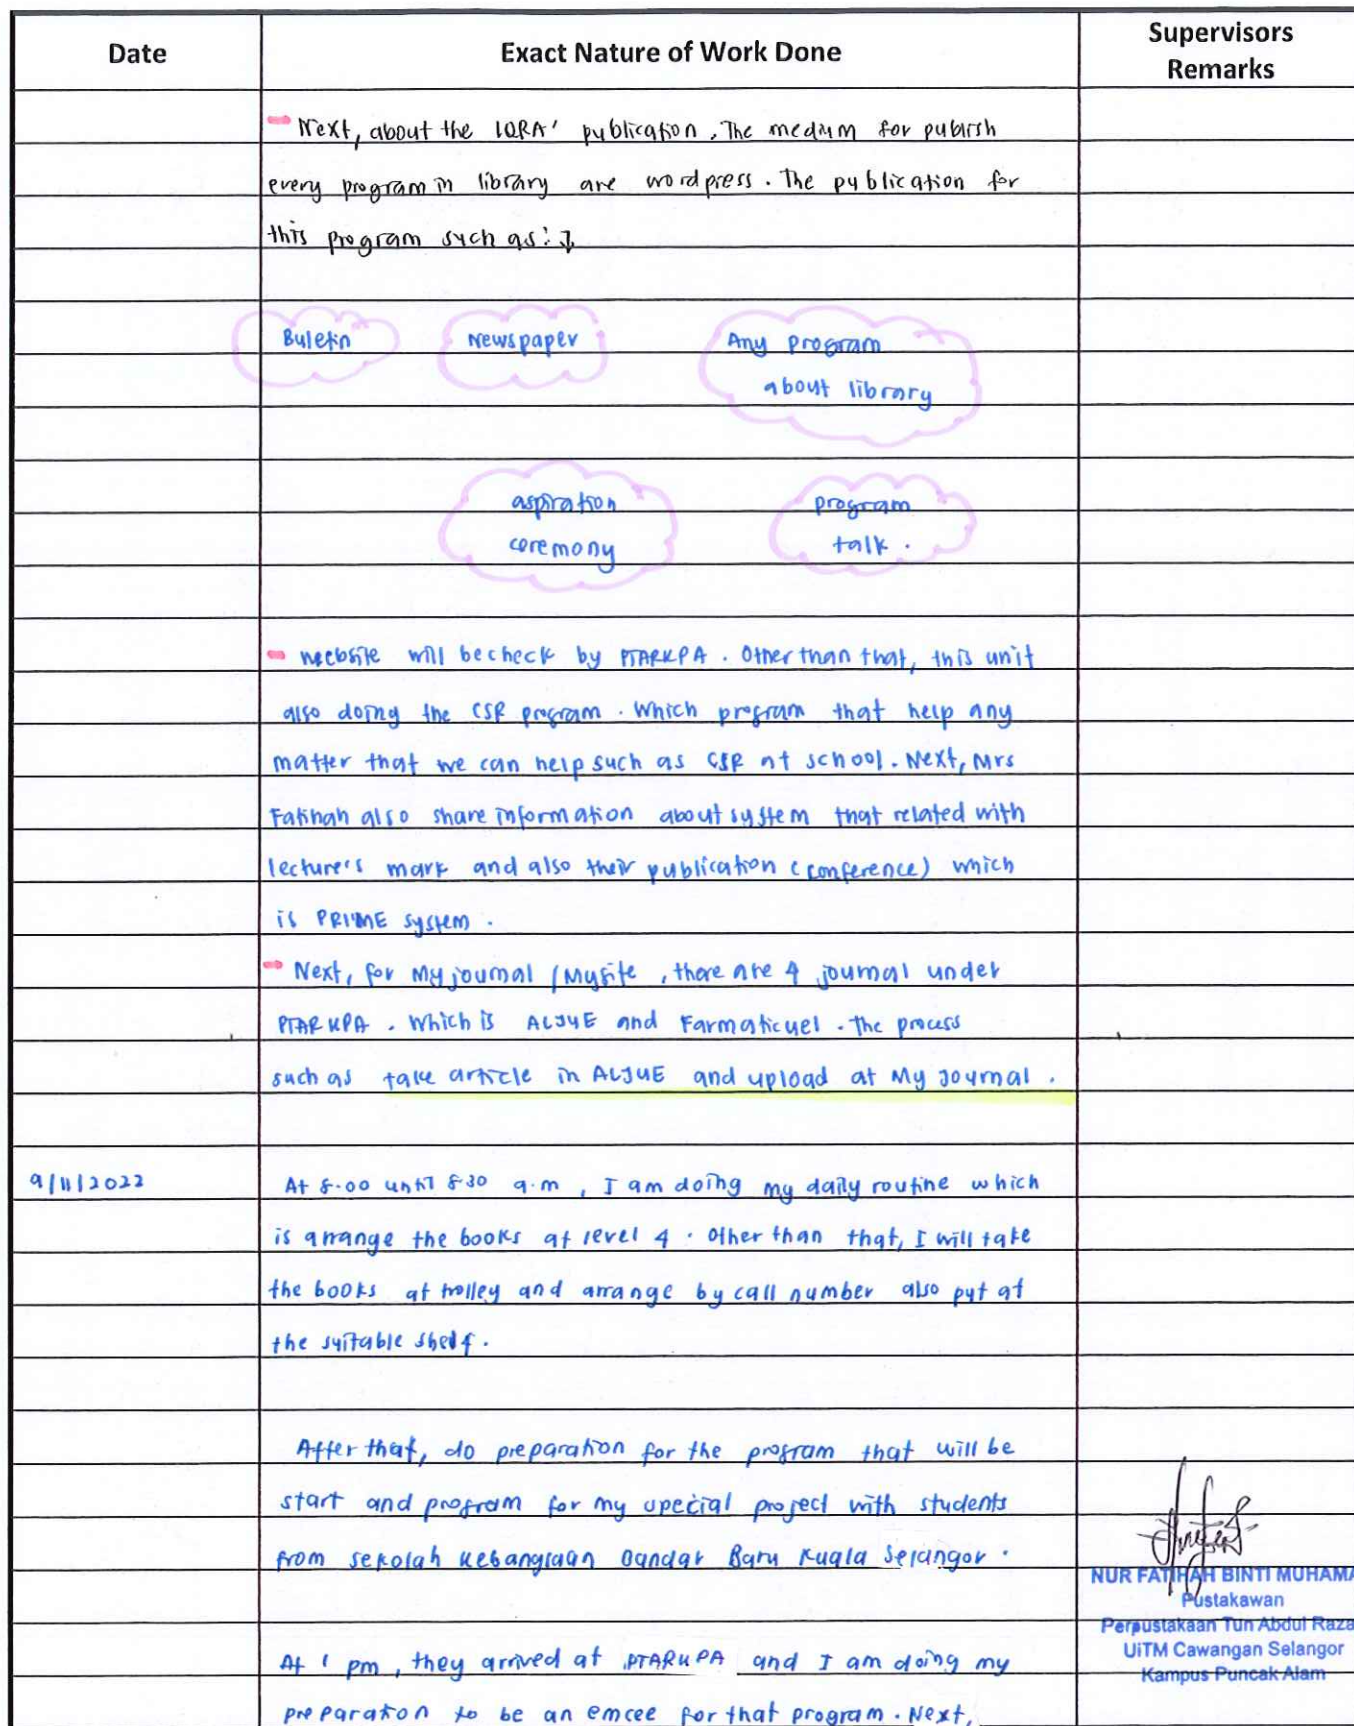 Date
Exact Nature of Work Done
Supervisors
Remarks
Next, about the IQRA' publication. The medium for publish
every program in library are wordpress. The publication for
this program such as: ↓
Buletin
Newspaper
Any program
about library
aspiration
ceremony
program
talk.
website will be check by PTARKPA. Other than that, this unit
also doing the CSR program. Which program that help any
matter that we can help such as CSR at school. Next, Mrs
Fatihah also share information about system that related with
lecturer's mark and also their publication (conference) which
is PRIME system.
Next, for My journal / Mysite, there are 4 journal under
PTARKPA. Which is ALJUE and Farmaticuel. The process
such as take article in ALJUE and upload at My Journal.
9/11/2022
At 8.00 until 8.30 a.m, I am doing my daily routine which
is arrange the books at level 4. Other than that, I will take
the books at trolley and arrange by call number also put at
the suitable shelf.
After that, do preparation for the program that will be
start and program for my special project with students
from Sekolah Kebangsaan Bandar Baru Kuala Selangor.
At 1 pm, they arrived at PTARKPA and I am doing my
preparation to be an emcee for that program. Next,
NUR FATIHAH BINTI MUHAMA
Pustakawan
Perpustakaan Tun Abdul Raza
UiTM Cawangan Selangor
Kampus Puncak Alam